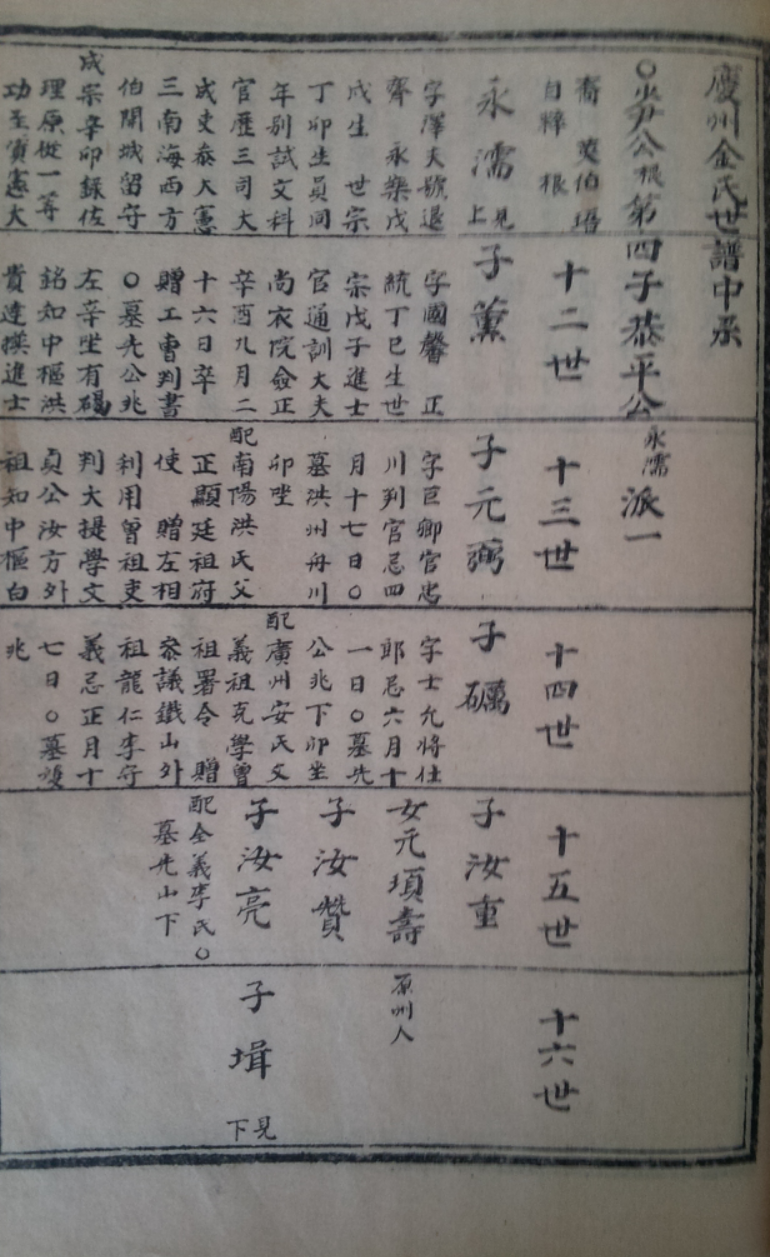 慶州金氏世譜中系
○少尹公根第四子恭平公永濡派一
裔 英伯 珸
自粹 根
十二世
十三世
十四世
十五世
十六世
永濡 見上
字澤夫號退
齋 永樂戊
戌生 世宗
丁卯生員同
年別試文科
官歷三司大
成吏泰大憲
三南海西方
伯開城留守
成宗辛卯錄佐
理原從一等
功至資憲大
子薰
字國馨 正
統丁巳生世
宗戊子進士
官通訓大夫
尚衣院僉正
辛酉九月二
十六日卒
贈工曺判書
○墓先公兆
左辛坐有碣
銘知中樞洪
貴達撰進士
子元弼
字巨卿官忠
川判官忌四
月十七日○
墓洪州舟川
卯坐
配南陽洪氏父
正顯廷祖府
使 贈左相
利用曾祖吏
判大提學文
貞公汝方外
祖知中樞白
子礪
字士允將仕
郎忌六月十
一日○墓先
公兆下卯坐
配廣州安氏父
義祖克學曾
祖署令 贈
參議鐵山外
祖龍仁李守
義忌正月十
七日○墓
兆
子汝重
女元頊壽
原州人
子汝贊
子汝亮
配全義李氏○
墓先山下
子堉 見下